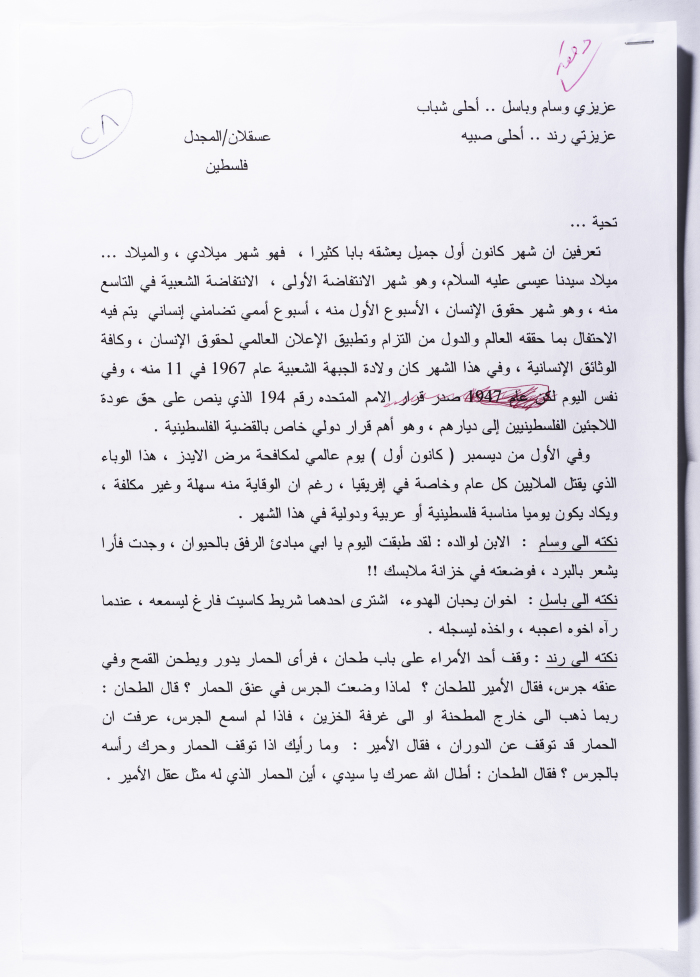 دمعة
٢٨
عزيزي وسام وباسل .. أحلى شباب
عزيزتي رند .. أحلى صبيه
عسقلان/المجدل
فلسطين
تحية ...
تعرفين ان شهر كانون أول جميل يعشقه بابا كثيرا ، فهو شهر ميلادي ، والميلاد ...
ميلاد سيدنا عيسى عليه السلام، وهو شهر الانتفاضة الأولى ، الانتفاضة الشعبية في التاسع
منه ، وهو شهر حقوق الإنسان ، الأسبوع الأول منه ، أسبوع أممي تضامني إنساني يتم فيه
الاحتفال بما حققه العالم والدول من التزام وتطبيق الإعلان العالمي لحقوق الإنسان ، وكافة
الوثائق الإنسانية ، وفي هذا الشهر كان ولادة الجبهة الشعبية عام 1967 في 11 منه ، وفي
نفس اليوم لكن عام 1947 صدر قرار الامم المتحده رقم 194 الذي ينص على حق عودة
اللاجئين الفلسطينيين إلى ديارهم ، وهو أهم قرار دولي خاص بالقضية الفلسطينية .
وفي الأول من ديسمبر ( كانون أول ) يوم عالمي لمكافحة مرض الايدز ، هذا الوباء
الذي يقتل الملايين كل عام وخاصة في إفريقيا ، رغم ان الوقاية منه سهلة وغير مكلفة ،
ويكاد يكون يوميا مناسبة فلسطينية أو عربية ودولية في هذا الشهر .
نكته الى وسام : الابن لوالده : لقد طبقت اليوم يا ابي مبادئ الرفق بالحيوان ، وجدت فأرا
يشعر بالبرد ، فوضعته في خزانة ملابسك !!
نكته الى باسل : اخوان يحبان الهدوء، اشترى احدهما شريط كاسيت فارغ ليسمعه ، عندما
رآه اخوه اعجبه ، واخذه ليسجله .
نكته الى رند : وقف أحد الأمراء على باب طحان ، فرأى الحمار يدور ويطحن القمح وفي
عنقه جرس، فقال الأمير للطحان ؟ لماذا وضعت الجرس في عنق الحمار ؟ قال الطحان :
ربما ذهب الى خارج المطحنة او الى غرفة الخزين ، فاذا لم اسمع الجرس، عرفت ان
الحمار قد توقف عن الدوران ، فقال الأمير : وما رأيك اذا توقف الحمار وحرك رأسه
بالجرس ؟ فقال الطحان : أطال الله عمرك يا سيدي ، أين الحمار الذي له مثل عقل الأمير .